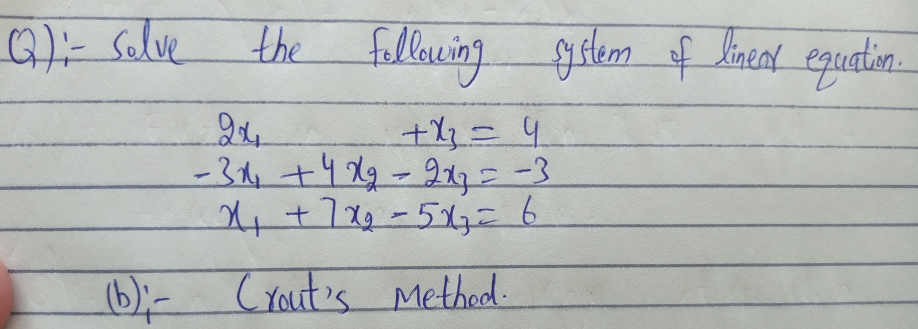 Q):- Solve the following system of linear equation.
2x₁ +x₃ = 4
-3x₁ +4x₂ - 2x₃ = -3
x₁ +7x₂ - 5x₃ = 6
(b):- Crout's Method.